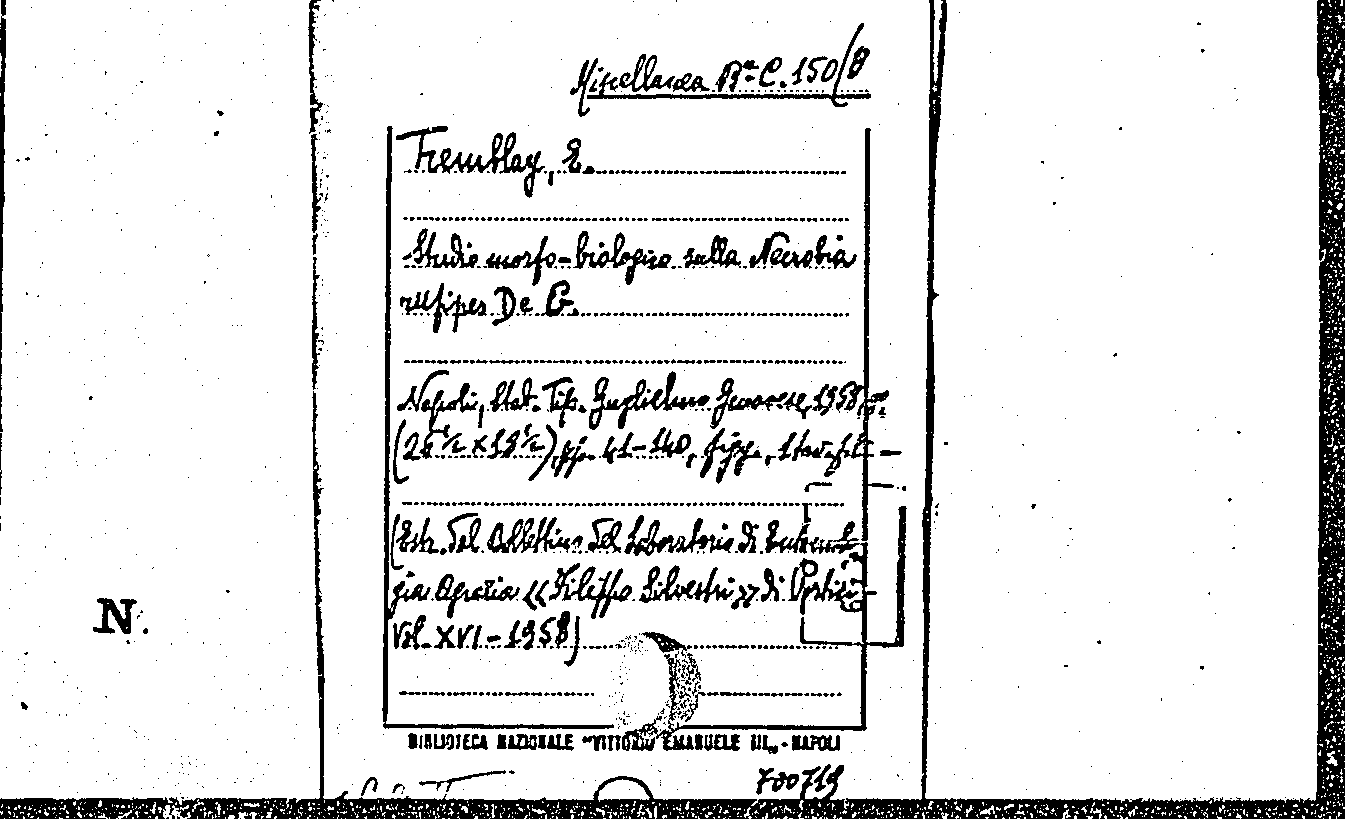 Miscellanea Bª C. 150/8
Tremblay, E.
Studio morfo-biologico sulla Necrobia
rufipes De G.
Napoli, Stab. Tip. Guglielmo Genovese, 1958,
(25½ x 19½), pp. 41-140, figg., 1 tav.
(Estr. dal Bollettino del Laboratorio di Entomolo-
gia Agraria «Filippo Silvestri» di Portici -
Vol. XVI - 1958)
N.
BIBLIOTECA NAZIONALE "VITTORIO EMANUELE III„ - NAPOLI
700719